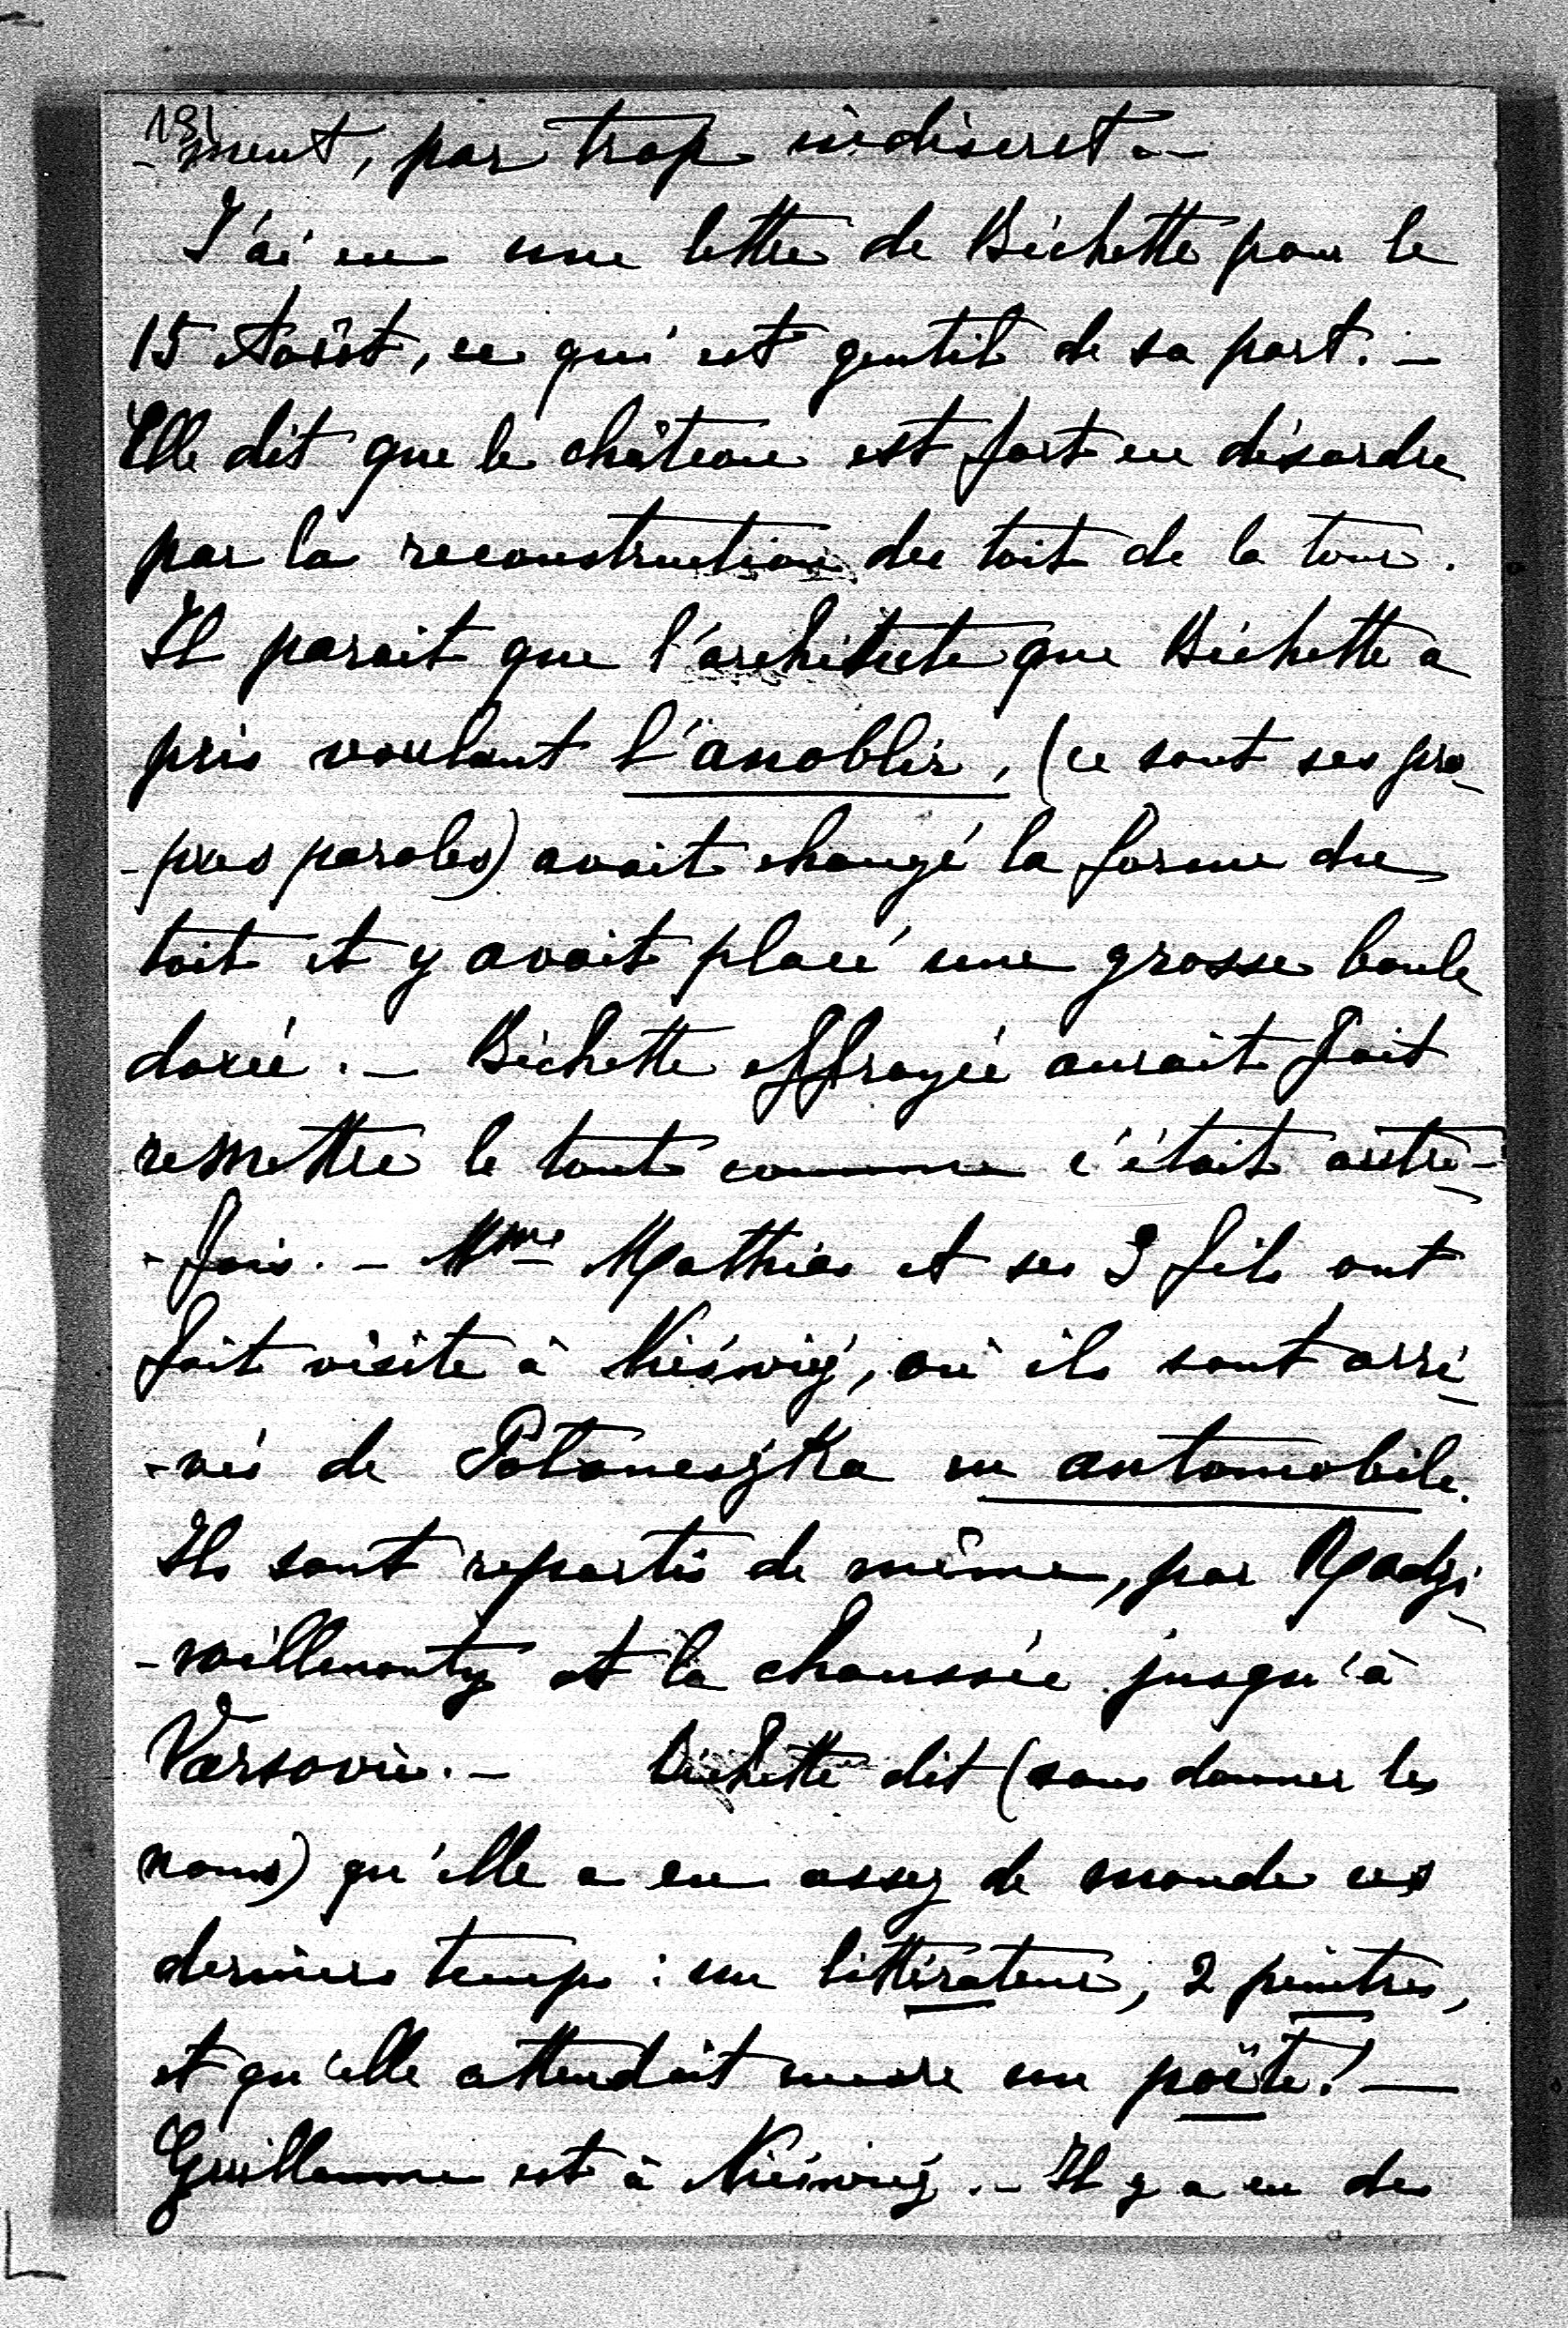 191
-ment, par trop indiscret. -
J'ai eu une lettre de Bichette pour le
15 Août, ce qui est gentil de sa part. -
Elle dit que le château est fort en désordre
par la reconstruction du toit de la tour.
Il parait que l'architecte que Bichette a
pris voulant l'anoblir, (ce sont ses pro-
-pres paroles) avait changé la forme du
toit et y avait placé une grosse boule
dorée. - Bichette effrayée aurait fait
remettre le tout comme c'était autre-
-fois. - Mme Mathias et ses 3 fils ont
fait visite à Nieświéź, où ils sont arri-
-vés de Potoneszka en automobile.
Ils sont repartis de même, par Radzi-
-willmonty et la chaussée jusqu'à
Varsovie. - Bichette dit (sans donner les
noms) qu'elle a eu assez de monde ces
derniers temps : un littérateur, 2 peintres,
et qu'elle attendait encore un poëte! -
Guillaume est à Nieświéź. - Il y a eu des